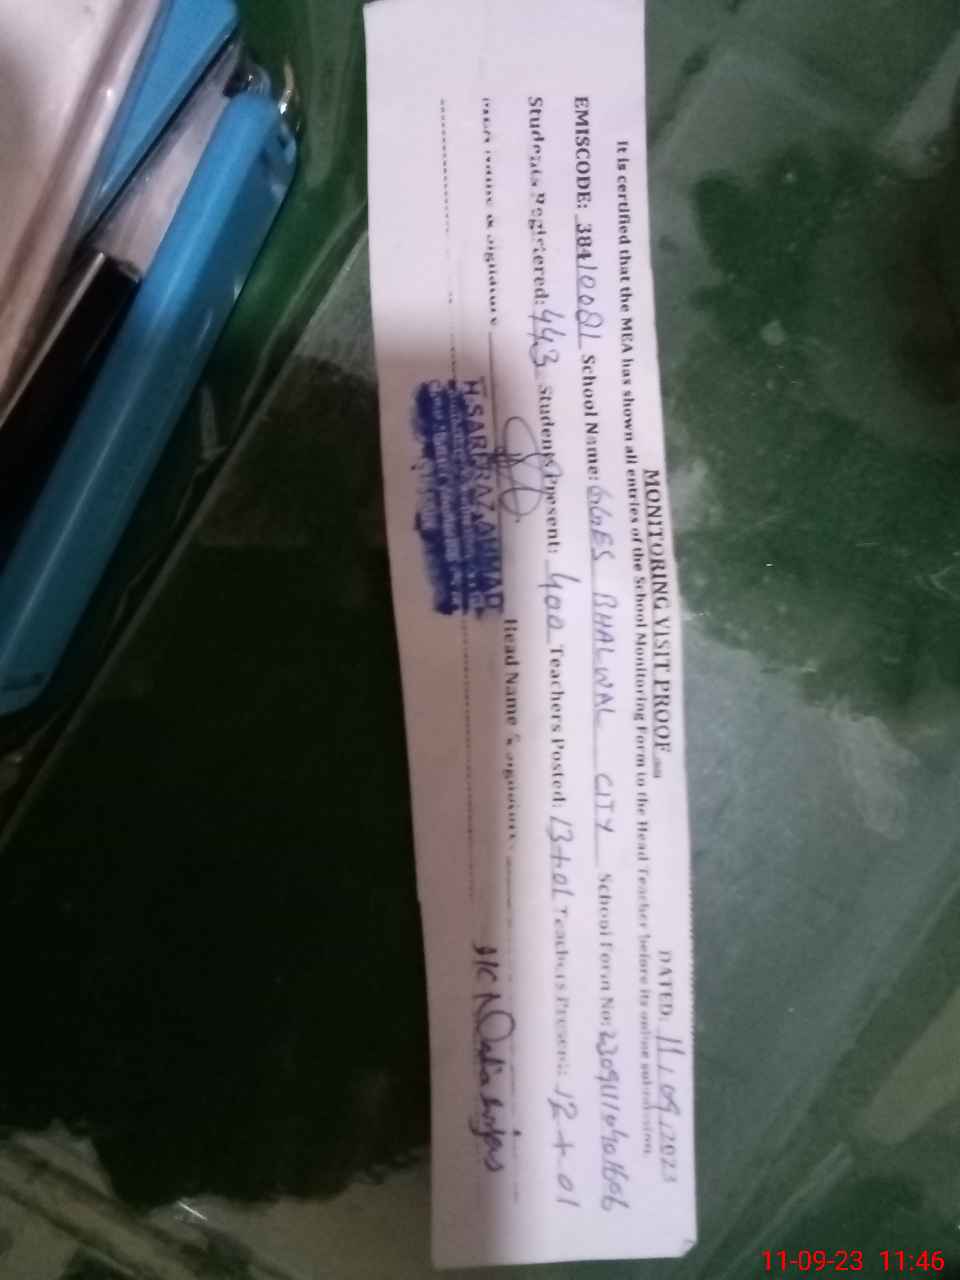 MONITORING VISIT PROOF
DATED: 11,09,2023
It is certified that the MEA has shown all entries of the School Monitoring Form to the Head Teacher before its online submission.
EMISCODE: 38410081 School Name: GGES BHALWAL CITY School Form No:
Students Registered: 443 Students Present: 400 Teachers Posted: 13+01 Teachers Present: 12+01
Name & Signature Head Name & Signature
H SARFRAZ AHMAD
I/C
11-09-23 11:46